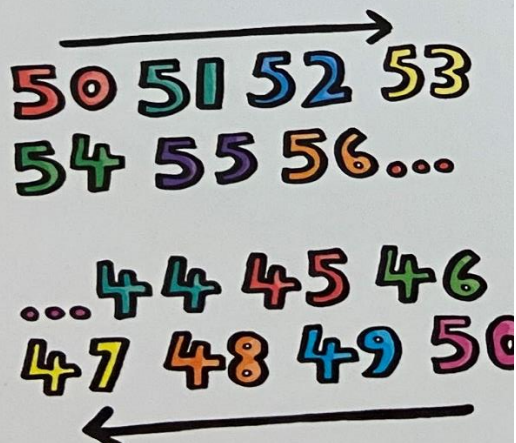 50 51 52 53
54 55 56...
...44 45 46
47 48 49 50